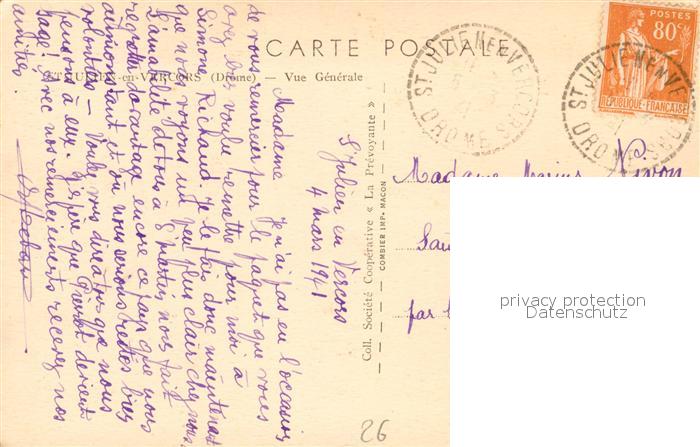 CARTE POSTALE
ST-JULIEN-en-VERCORS (Drôme) — Vue Générale
Coll. Société Coopérative « La Prévoyante »
COMBIER IMP. MACON
POSTES
80c
REPUBLIQUE FRANÇAISE
ST JULIEN EN VERCORS
DROME
ST JULIEN EN VERCORS
DROME
St Julien en Vercors
4 mars 1941
Madame Je n'ai pas eu l'occasion
de vous remercier pour le paquet que vous
avez bien voulu remettre pour moi à
Simone Richaud. Je le fais donc maintenant
que nous voyons un peu plus clair chez nous.
L'amabilité de tous à St Martin nous fait
regretter davantage encore ce pays que nous
aimions tant et où nous serions restés bien
volontiers — Voulez vous dire à tous que nous
pensons à eux. J'espère que devient
sage! Avec nos remerciements recevez nos
amitiés.
Madame Marius
par
26
privacy protection
Datenschutz